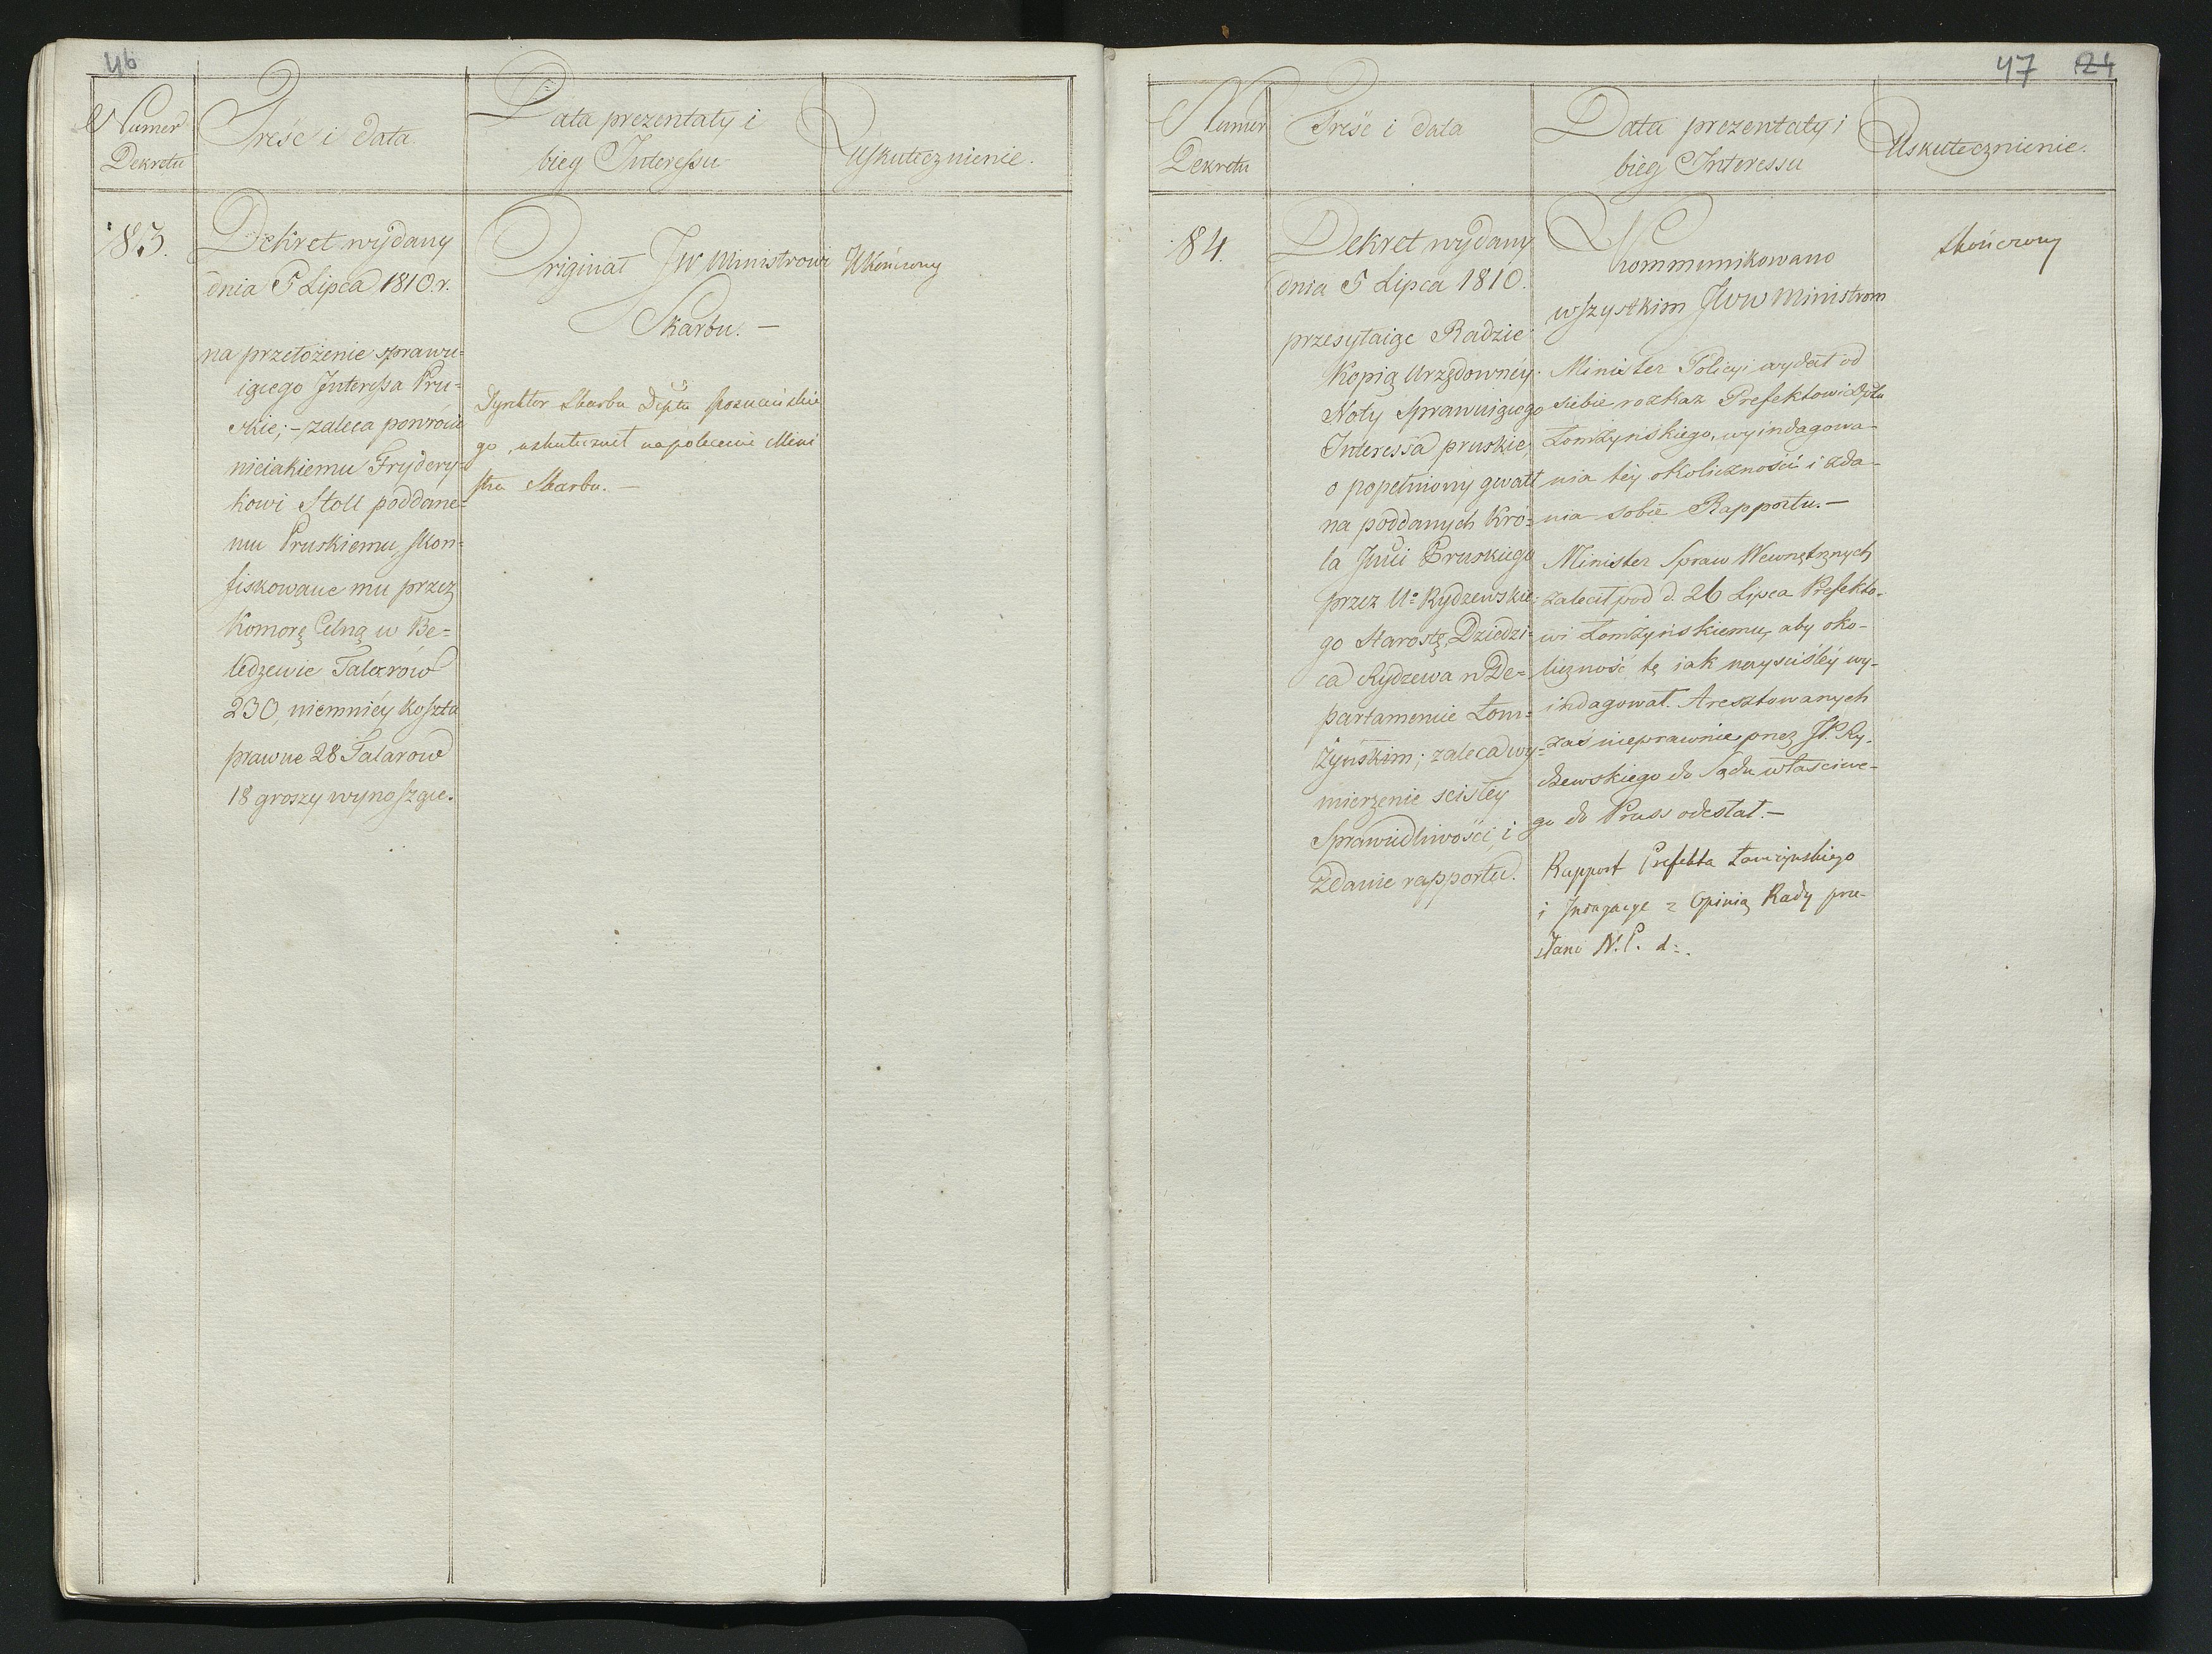 46
Numer
Dekretu
Treść i data
Data prezentaty i
bieg Interessu
Uskutecznienie.
183.
Dekret wydany
dnia 5 Lipca 1810. r.
na przełożenie sprawu=
iącego Interessa Pru=
skie; – zaleca powróce
nieiakiemu Frydery=
kowi Stoll poddane=
mu Pruskiemu, skon=
fiskowane mu przez
Komorę Celną w Be=
ledzewie Talarów
230, niemniéy koszta
prawne 28 Talarow
18 groszy wynoszące.
Originał JW Ministrowi
Skarbu. –
Dyrektor Skarbu Deptu Poznańskie
go, uskutecznił na polecenie Mini
stra Skarbu. –
Ukończony
47 24
Numer
Dekretu
Treść i data
Data prezentaty i
bieg Interessu
Uskutecznienie.
184.
Dekret wydany
dnia 5 Lipca 1810.
przesyłaiąc Radzie
Kopią Urzędownéy
Noty Sprawuiącego
Interessa pruskie,
o popełniony gwałt
na poddanych Kró=
la Jmci Pruskiego
przez Uo Rydzewskie=
go Starostę, Dziedzi=
ca Rydzewa w De=
partamencie Łom=
żyńskim; zaleca wy=
mierzenie scisłey
Sprawiedliwości, i
zdanie rapportu.
Kommunikowano
wszystkim JWW Ministrom
Minister Policyi wydał od
siebie rozkaz Prefektowi Dptu
Łomżyńskiego, wyindagowa-
nia téy okoliczności i zda-
nia sobie Rapportu. –
Minister Spraw Wewnętrznych
zalecił pod d. 26 Lipca Prefekto-
wi Łomżyńskiemu, aby oko-
liczność tę iak nayściśléy wy-
indagował. Aresztowanych
zaś nieprawnie przez JP. Ry-
dzewskiego do Sądu właściwe-
go do Pruss odesłał. –
Rapport Prefekta Łomżyńskiego
i Indagacye z Opinią Rady prze-
słano N. P. d:.
skończony